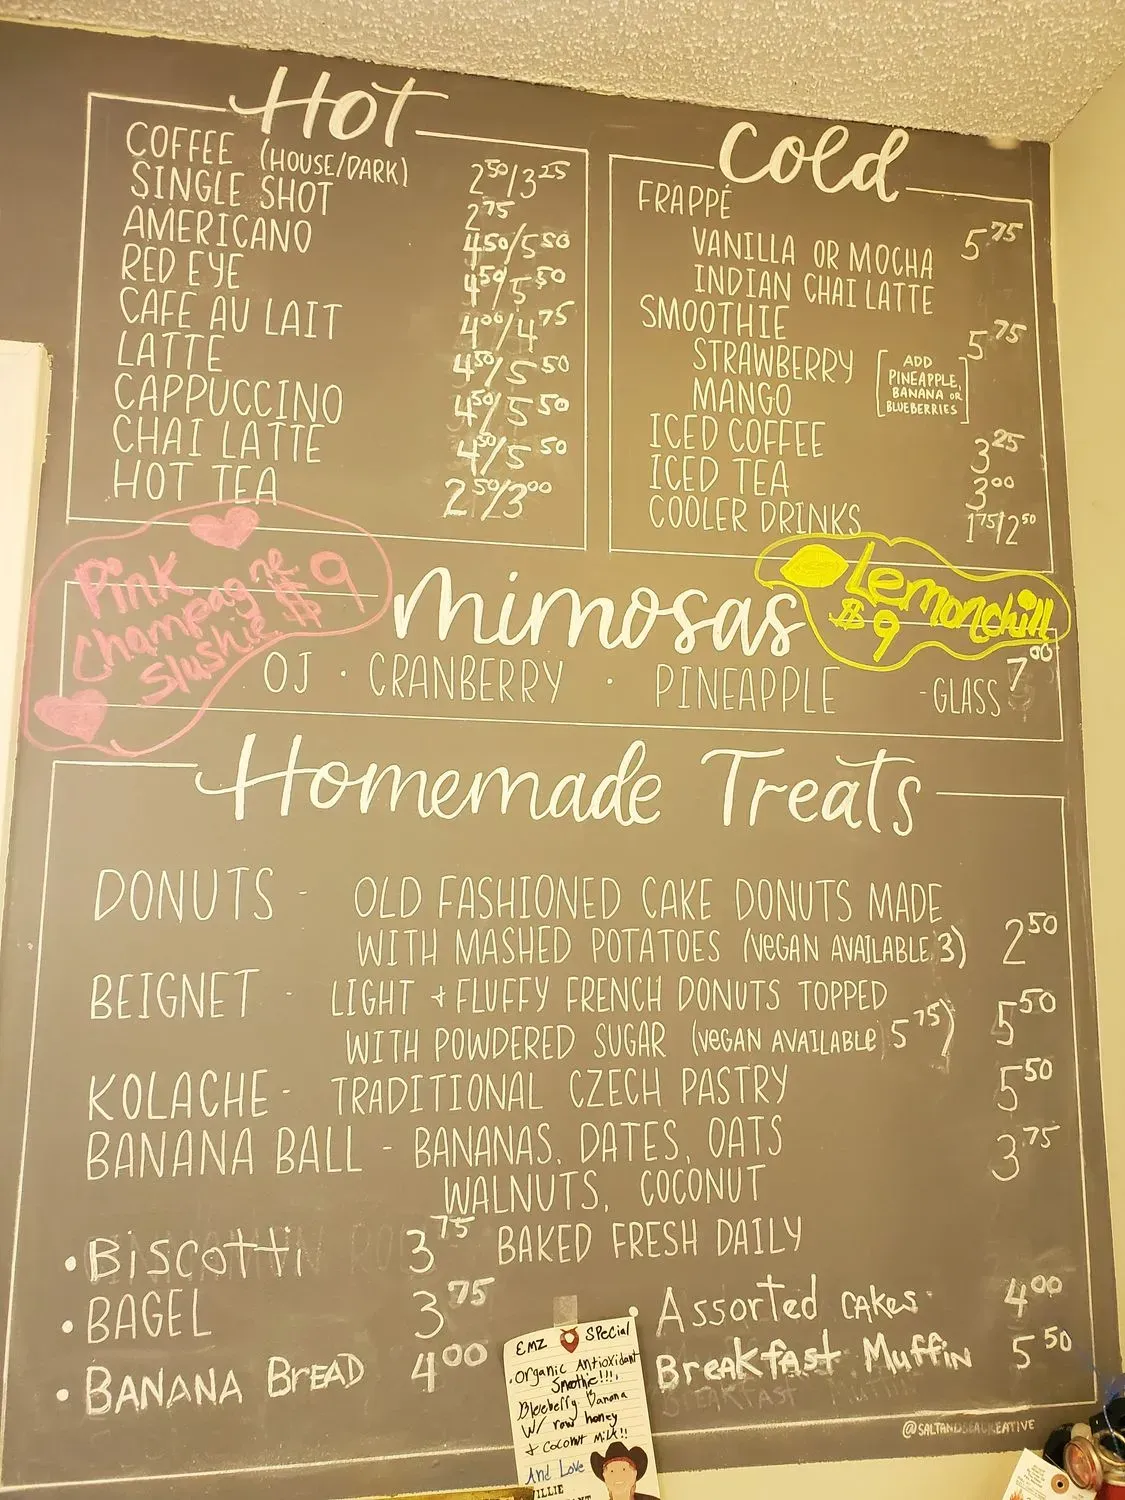 Hot
COFFEE (HOUSE/DARK) 2⁵⁰/3²⁵
SINGLE SHOT 2⁷⁵
AMERICANO 4⁵⁰/5⁵⁰
RED EYE 4⁵⁰/5⁵⁰
CAFE AU LAIT 4⁰⁰/4⁷⁵
LATTE 4⁵⁰/5⁵⁰
CAPPUCCINO 4⁵⁰/5⁵⁰
CHAI LATTE 4⁵⁰/5⁵⁰
HOT TEA 2⁵⁰/3⁰⁰
Cold
FRAPPÉ 5⁷⁵
VANILLA OR MOCHA
INDIAN CHAI LATTE
SMOOTHIE 5⁷⁵
STRAWBERRY
MANGO
[ADD
PINEAPPLE,
BANANA OR
BLUEBERRIES]
ICED COFFEE 3²⁵
ICED TEA 3⁰⁰
COOLER DRINKS 1⁷⁵/2⁵⁰
Pink
Champagne $9
Slushie
mimosas
Lemonchill
$9
OJ · CRANBERRY · PINEAPPLE -GLASS 7⁰⁰
Homemade Treats
DONUTS - OLD FASHIONED CAKE DONUTS MADE
WITH MASHED POTATOES (VEGAN AVAILABLE 3) 2⁵⁰
BEIGNET - LIGHT + FLUFFY FRENCH DONUTS TOPPED
WITH POWDERED SUGAR (VEGAN AVAILABLE 5⁷⁵) 5⁵⁰
KOLACHE - TRADITIONAL CZECH PASTRY 5⁵⁰
BANANA BALL - BANANAS, DATES, OATS 3⁷⁵
WALNUTS, COCONUT
BAKED FRESH DAILY
• BISCOTTI 3⁷⁵
• BAGEL 3⁷⁵
• BANANA BREAD 4⁰⁰
• Assorted CAKES 4⁰⁰
Breakfast Muffin 5⁵⁰
EMZ SPecial
. Organic Antioxidant
Smoothie!!!.
Blueberry Banana
W/ raw honey
+ Coconut Milk!!
And Love
@SALTANDSEACREATIVE